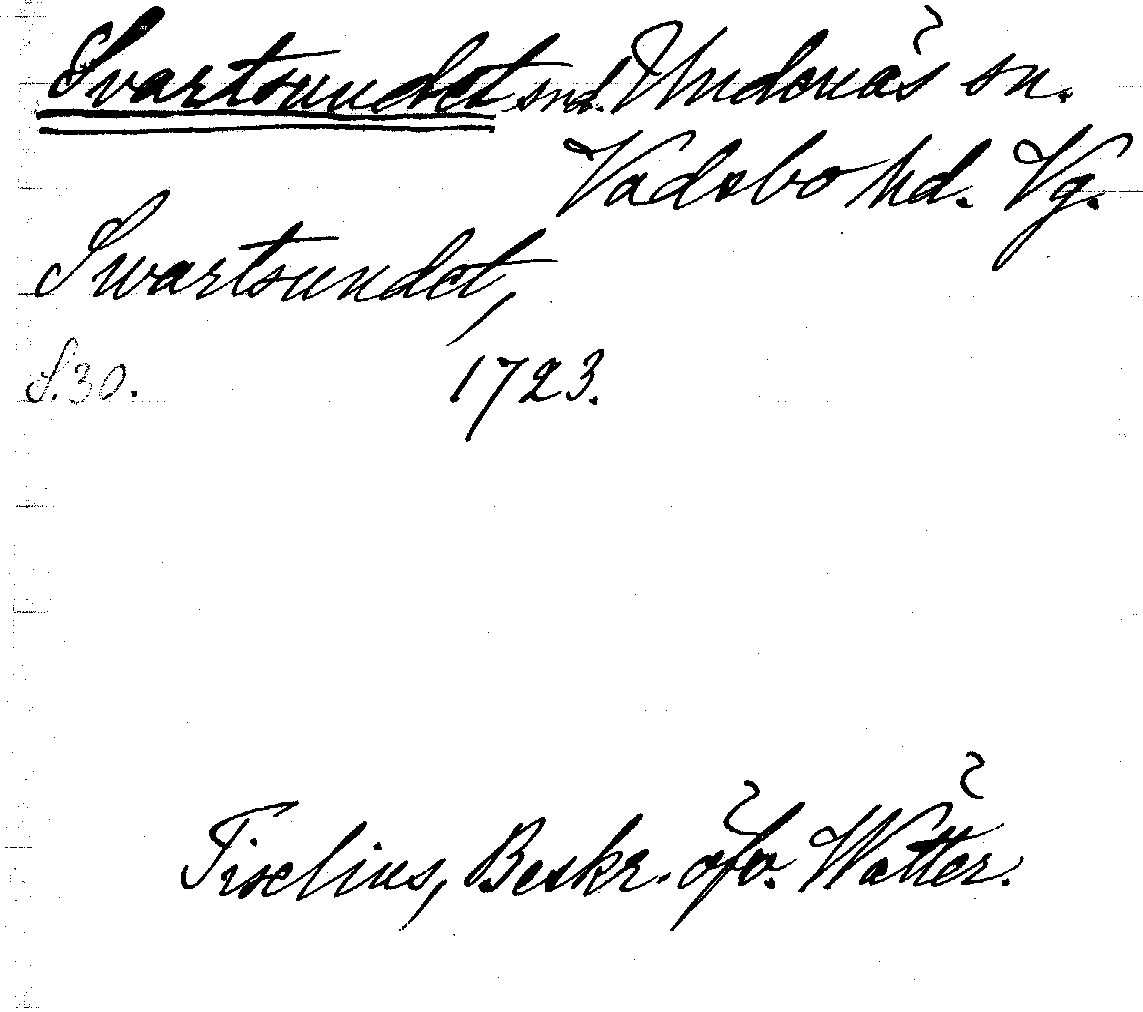 Svartsundet snd. Undenäs sn.
Vadsbo hd. Vg.
Swartsundet,
S. 30. 1723.
Tiselius, Beskr. öfv. Wätter.